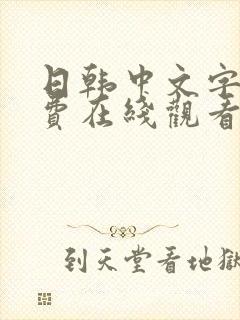 日韩中文字
費在綫觀看
到天堂看地獄